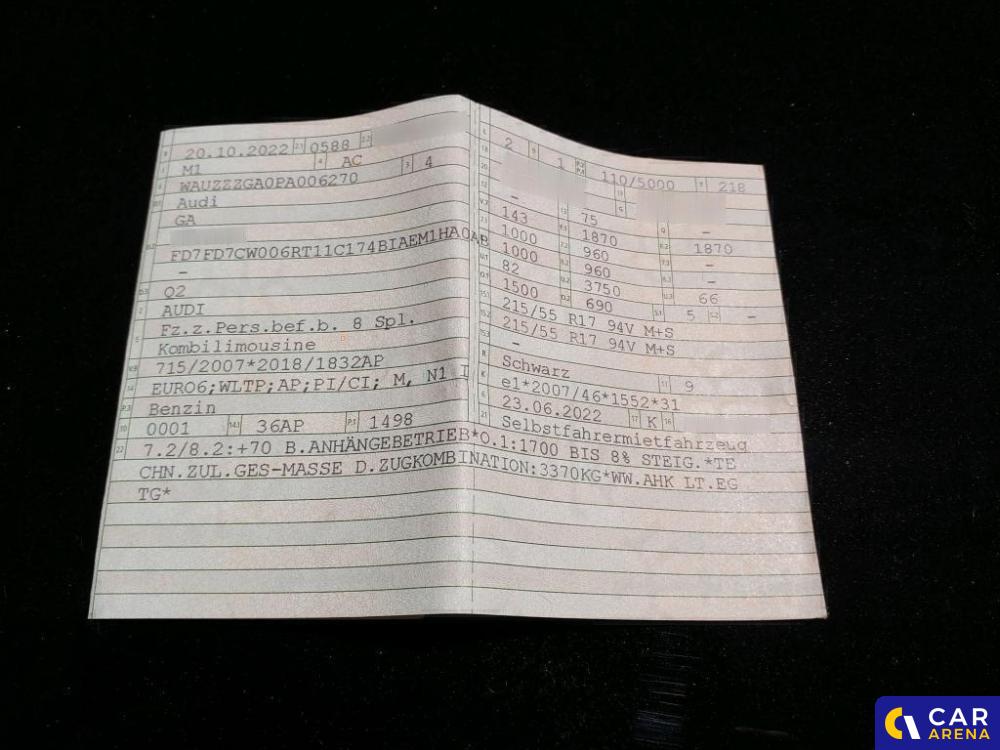 20.10.2022 0588
M1 AC 4
WAUZZZGA0PA006270
Audi
GA
FD7FD7CW006RT11C174BIAEM1HA0AB
–
Q2
AUDI
Fz.z.Pers.bef.b. 8 Spl.
Kombilimousine
715/2007*2018/1832AP
EURO6;WLTP;AP;PI/CI; M, N1 I
Benzin
0001 36AP 1498
2 1
110/5000 218
–
143 75 –
1000 1870 1870
1000 960 –
82 960 –
1500 3750 66
215/55 R17 94V M+S 690 5 –
215/55 R17 94V M+S
–
Schwarz 9
e1*2007/46*1552*31
23.06.2022 K
Selbstfahrermietfahrzeug
7.2/8.2:+70 B.ANHÄNGEBETRIEB*O.1:1700 BIS 8% STEIG.*TE
CHN.ZUL.GES-MASSE D.ZUGKOMBINATION:3370KG*WW.AHK LT.EG
TG*
CAR
ARENA